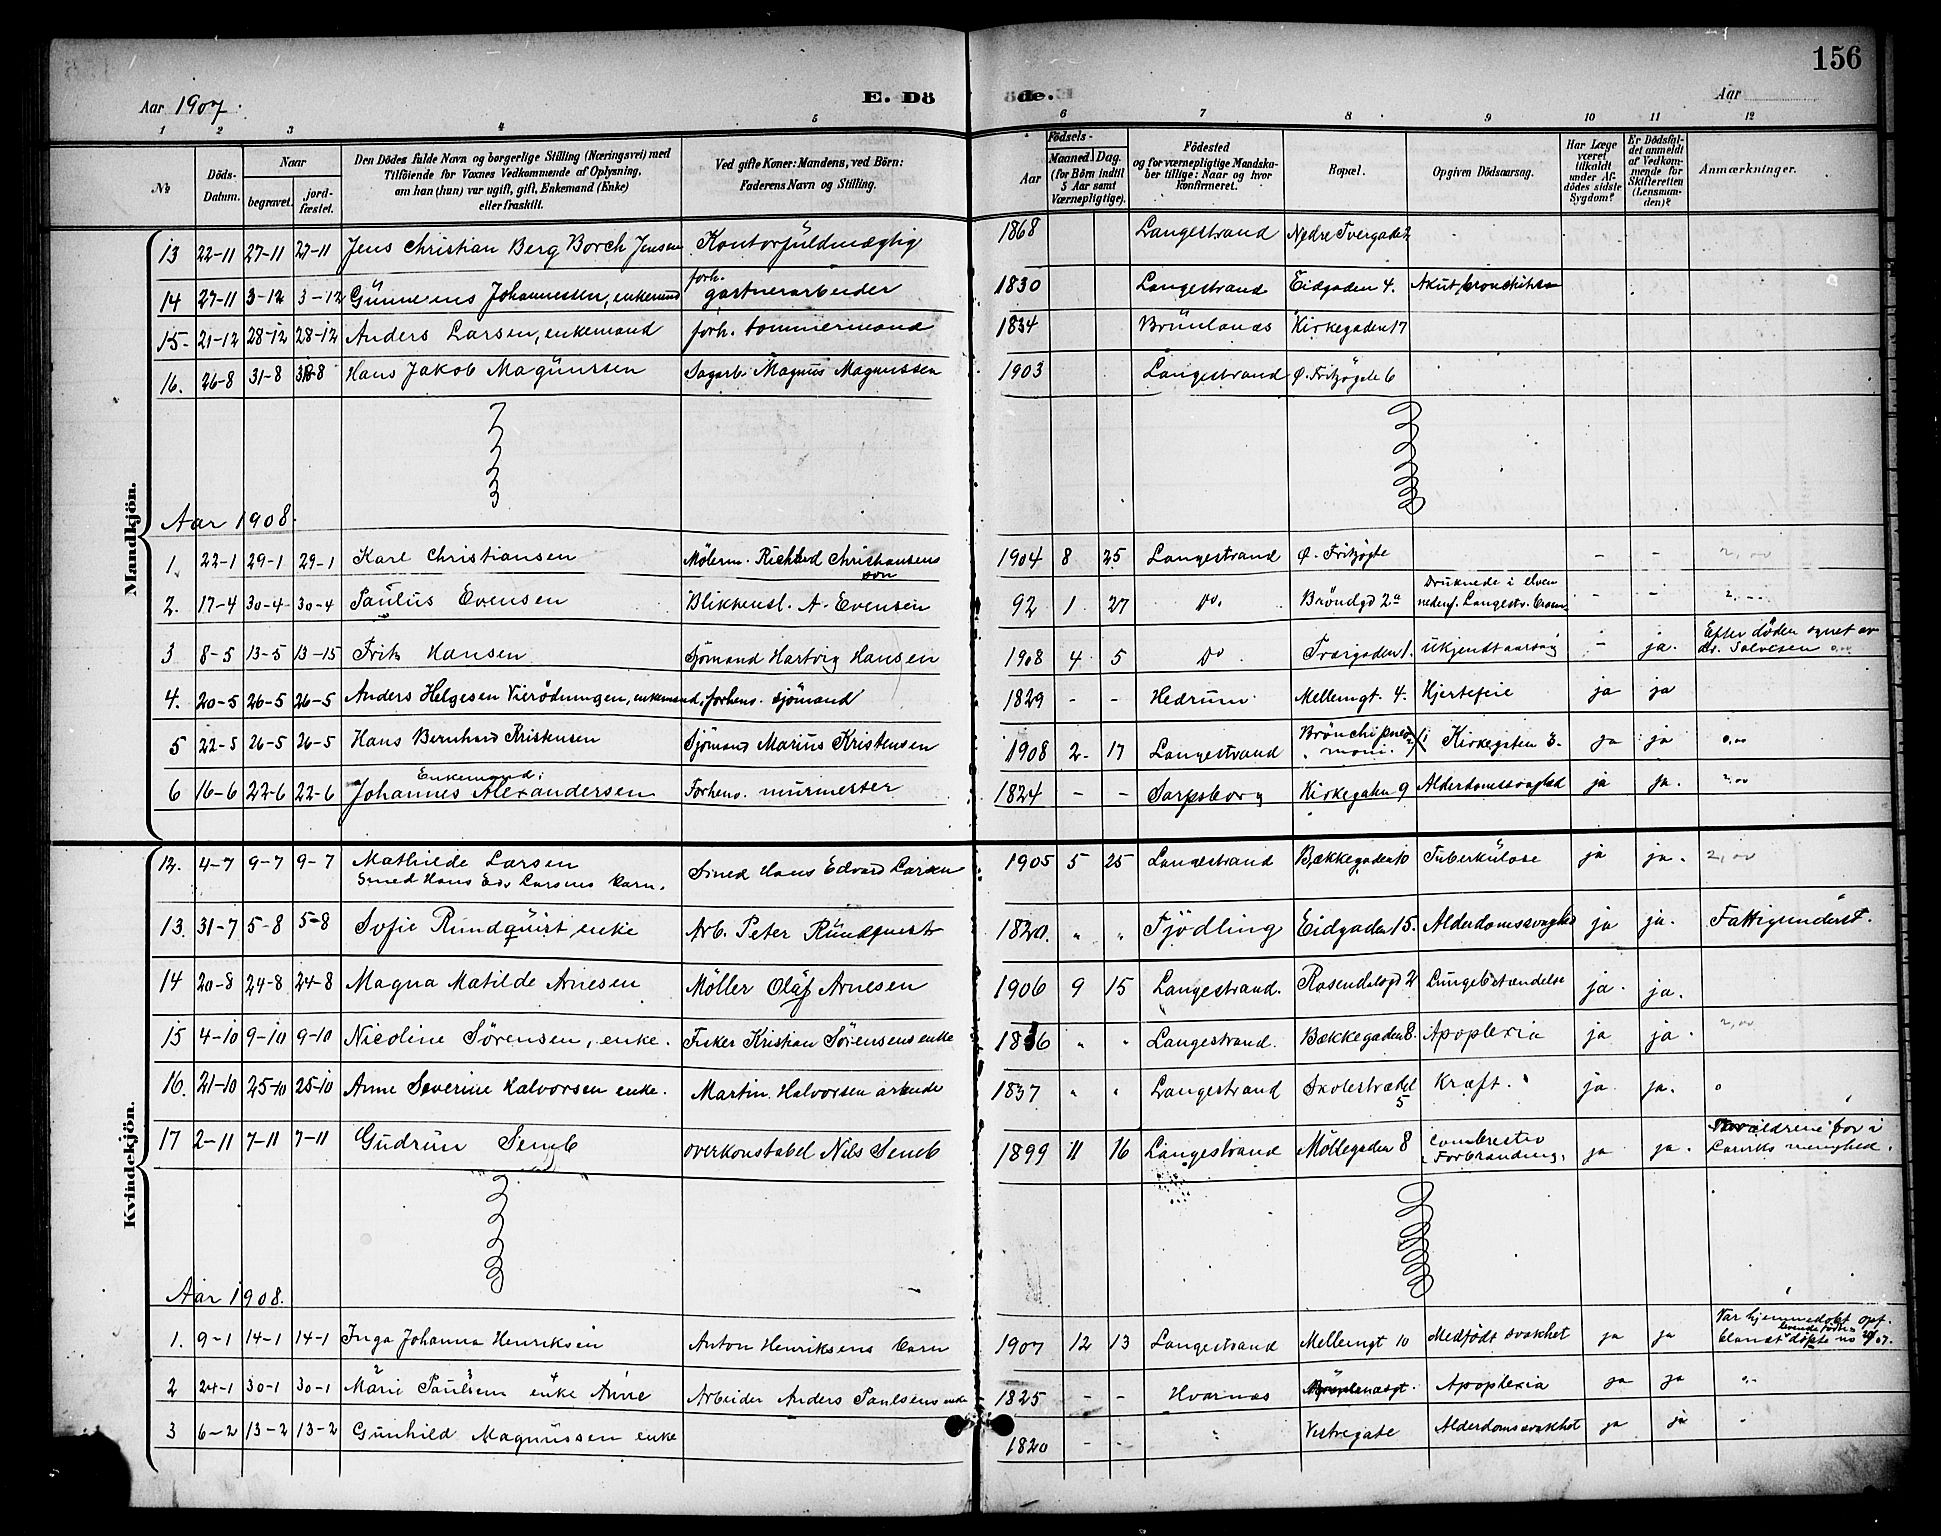 156
Aar 1907.
E. Dö
de.
Aar
1 2 3 4 5 6 7 8 9 10 11 12
№
Döds-Datum.
Naar
begravet.
jord-fæstet.
Den Dödes fulde Navn og borgerlige Stilling (Næringsvei) med
Tilföiende for Voxnes Vedkommende af Oplysning,
om han (hun) var ugift, gift, Enkemand (Enke)
eller fraskilt.
Ved gifte Koner: Mandens, ved Börn:
Faderens Navn og Stilling.
Födsels-
Aar
Maaned. Dag.
(for Börn indtil
5 Aar samt
Værnepligtige).
Födested
og for værnepligtige Mandska-
ber tillige: Naar og hvor
konfirmeret.
Bopæl.
Opgiven Dödsaarsag.
Har Læge
været
tilkaldt
under Af-
dödes sidste
Sygdom?
Er Dödsfal-
det anmeldt
af Vedkom-
mende for
Skifteretten
(Lensman-
den)?
Anmærkninger.
Mandkjön.
13 22-11 27-11 27-11 Jens Christian Berg Borch Jensen Kontorfuldmægtig 1868 Langestrand Nedre Tvergade 2
14 27-11 3-12 3-12 Johannessen, enkemand forh. gartnerarbeider 1830 Langestrand Eidgaden 4. Akut bronchitis
15 21-12 28-12 28-12 Anders Larsen, enkemand forh. tømmermand 1834 Brunlanæs Kirkegaden 17
16. 26-8 31-8 Hans Jakob Magnussen Sagarb. Magnus Magnussen 1903 Langestrand Ø. Fritzøgte 6
Aar 1908.
1. 22-1 29-1 29-1 Karl Christiansen Richard Christiansens søn 1904 8 25 Langestrand Ø. Fritzøgte - - 2,00
2. 17-4 30-4 30-4 Paulus Evensen Blikkensl. A. Evensen 92 1 27 Do. Brøndgd 2a Druknede i elven nedenf. Langestr. - -
3 8-5 13-5 13-15 Fritz Hansen Sjömand Hartvig Hansen 1908 4 5 Do Tvergaden 1. Ukjendt aarsag - ja. Efter døden synet av dr. Salvesen
4. 20-5 26-5 26-5 Anders Helgesen Vierødningen, enkemand, forhenv. sjömand 1829 - - Hedrum Mellemgt. 4. Hjertefeil ja ja
5 22-5 26-5 26-5 Hans Bernhard Kristensen Sjömand Marius Kristensen 1908 2 17 Langestrand Kirkegaten 3. ja ja
6 16-6 22-6 22-6 Enkemand: Johannes Alexandersen Forhenv. murmester 1824 - - Sarpsborg Kirkegaten 9 Alderdomssvaghed ja ja. 2,00
Kvindekjön.
12. 4-7 9-7 9-7 Mathilde Larsen Smed Hans Edv Larsens barn. Smed Hans Edvard Larsen 1905 5 25 Langestrand Bækkegaden 10 Tuberkulose ja ja. 2,00
13. 31-7 5-8 5-8 Sofie Rundquist enke Arb. Peter Rundquist 1820. " " Tjödling Eidgaden 15. Alderdomssvaghed ja ja. Fattigunderst.
14 20-8 24-8 24-8 Magna Matilde Arnesen Möller Olaf Arnesen 1906 9 15 Langestrand. Rosendalsgd 2 Lungebetændelse ja. ja.
15 4-10 9-10 9-10 Nicoline Sørensen, enke. Fisker Kristian Sørensens enke 1836 " " Langestrand. Bækkegaden 8. Apoplexia ja ja. 2,00
16. 21-10 25-10 25-10 Anne Severine Halvorsen enke. Martin Halvorsen arbeide 1837 " " Langestrand Skolestrædet 5 Kræft. ja. ja.
17 2-11 7-11 7-11 Gudrun Semb overkonstabel Nils Semb 1899 11 16 Langestrand Möllegaden 8 combustio Forbrænding. ja ja. forældrene bor i Larviks menighed.
Aar 1908.
1. 9-1 14-1 14-1 Inga Johanna Henriksen Anton Henriksens barn 1907 12 13 Langestrand Mellemgt 10 Medfödt svakhet ja ja Var hjemmedøbt
2 24-1 30-1 30-1 Marie Paulsen enke Anne Arbeider Anders Paulsens enke 1825 - - Hvarnæs Apoplexia ja ja
3 6-2 13-2 13-2 Gunhild Magnussen enke 1820 - - " Vestregate Alderdomssvakhet ja ja "